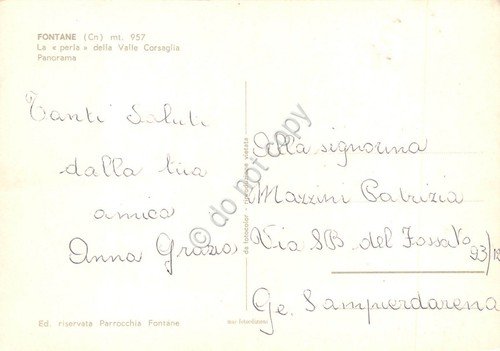 FONTANE (Cn) mt. 957
La « perla » della Valle Corsaglia
Panorama
Tanti saluti
dalla tua
amica
Anna Grazia
Alla signorina
Mazzini Patrizia
Via SB del Fossato
23/12
Ge. Sampierdarena
Ed. riservata Parrocchia Fontane
da fotocolor vietata
© do not copy